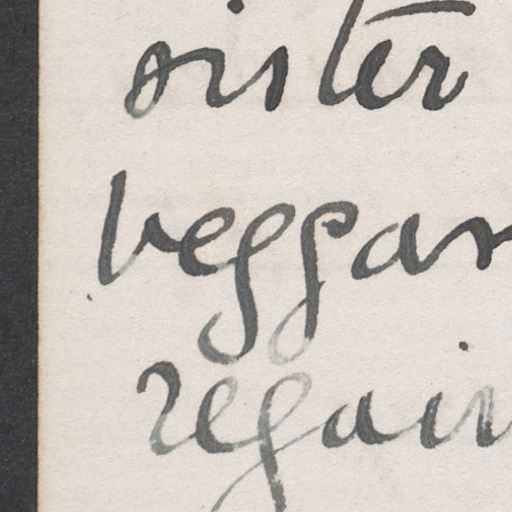 sister
beggar
regain